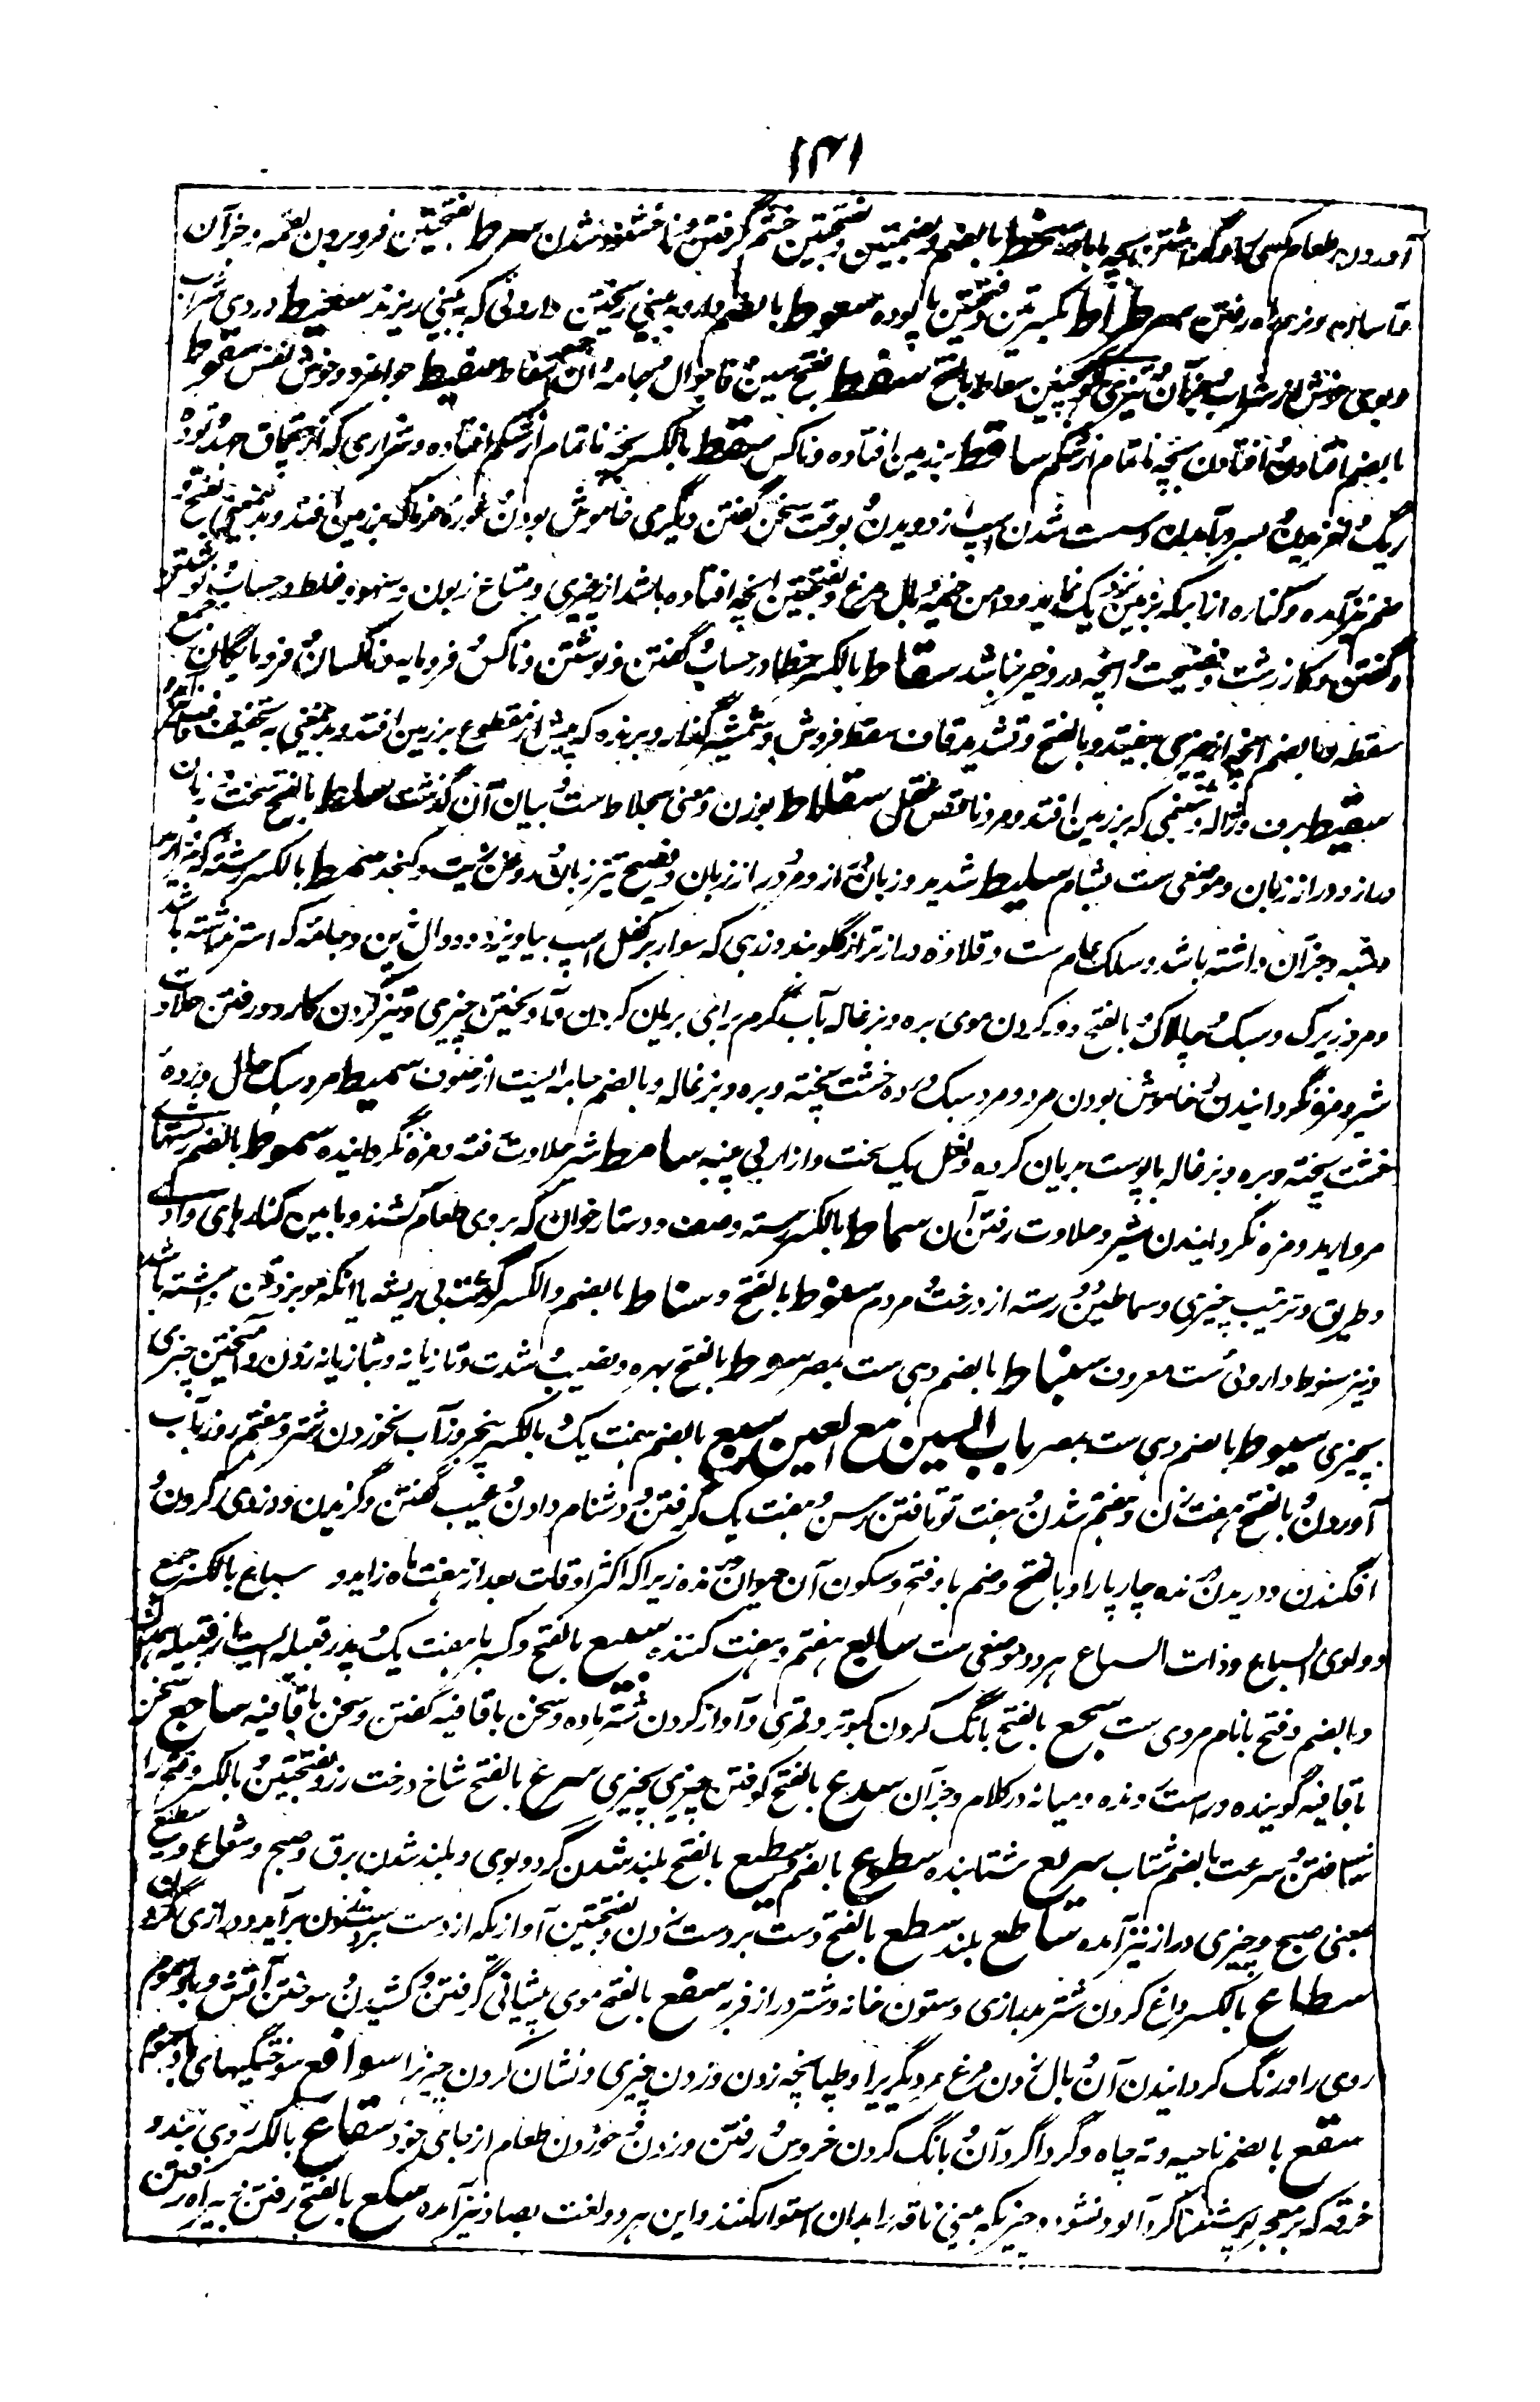 ۱۴۱
آوردن طعام کسی را و گذاشتن بچه سخط بالضم و بضمتین و بفتحتین خشم گرفتن و ناخشنود شدن سرط بفتحتین فرو بردن لقمه و جز آن
سرطراط بکسرتین و فتحتین پالوده سعوط بالضم دارو به بینی ریختن داروئی که به بینی ریزند سعیط دردی شراب
و بوی خوش از شراب و جز آن و تیزی سقاط بالفتح سقط بفتح سین سقیط جوانمرد و خوش نفس سقوط
بالضم افتادن و افتادن بچه ناتمام از شکم ساقط بزمین افتاده و ناکس سقط بالکسر بچه ناتمام از شکم افتاده و شراری که از چقماق جهد و توده
ریگ و لغزیدن و سست شدن اسپ از دویدن و بوقت سخن گفتن دیگری خاموش بودن و غوره خرما که بزمین افتد و بدینمعنی بفتح و
ضم نیز آمده و کناره از ابر که بزمین نزدیک نماید و دامن خیمه و بال مرغ و بفتحتین انچه افتاده باشد از چیزی و متاع زبون و سهو و غلط در حساب و نوشتن
و گفتن و کار زشت و فضیحت و انچه درو خیر نباشد سقاط بالکسر خطا در حساب و گفتن و نوشتن و ناکس و فرومایه و ناکسان و فرومایگان جمع
سقطه بالضم انچه از چیزی بیفتد و بالفتح و تشدید قاف سقط فروش و شمشیر گذار و برنده که پیش از مقطوع بر زمین افتد و بدینمعنی به تخفیف قاف نیز آمده
سقیط برف و ژاله و شبنمی که بر زمین افتد و مرد ناقص عقل سقلاط بوزن و معنی سجلاط ست و بیان آن گذشت سلط بالفتح سخت زبان
دراز و دراز زبان و موضعی ست بشام سلیط شدید و زبان آور و مرد دراز زبان و فصیح تیز زبان و روغن زیت و کنجد سمط بالکسر رشته که مروارید
و شبه و جز آن داشته باشد و سلک عام ست و قلاده درازتر از گلوبند و زهی که سوار بر کفل اسپ بیاویزد و دوال زین و جامه که استر نداشته باشد
و مرد زیرک و سبک و چالاک و بالفتح دور کردن موی بره و بزغاله بآب گرم برای بریان کردن و آویختن چیزی و تیز کردن کارد و رفتن حلاوت
شیر و مزه نگردانیدن و خاموش بودن مرد و مرد سبک و رده خشت پخته و بره و بزغاله و بالضم جامه ایست از صوف سمیط مرد سبک حال و رده
خشت پخته و بره و بزغاله با پوست بریان کرده و نعل یک لخت و ازار بی پنبه سامط شیر حلاوت رفته و مزه نگردانیده سموط بالضم رشتهای
مروارید و مزه نگردانیدن شیر و حلاوت رفتن آن سماط بالکسر رسته و صف و دستارخوان که بروی طعام کشند و مابین کنارهای وادی
و طریق و ترتیب چیزی و سماطین دو رسته از درخت و مردم سنوط بالفتح و سناط بالضم و الکسر کوسه بی ریش یا آنکه مو بر ذقن داشته باشد
و نیز سنوط داروئی ست معروف سنباط بالضم دهی ست بمصر سوط بالفتح بهره و نصیب و شدت و تازیانه و بتازیانه زدن و آمیختن چیزی
بچیزی سیوط بالضم دهی ست بمصر باب السین مع العین سبع بالضم هفت یک و بالکسر پنج روز آب نخوردن شتر و هفتم روز بآب
آوردن و بالفتح هفت زن و هفتم شدن و هفت تو تافتن رسن و هفت یک گرفتن و دشنام دادن و عیب گفتن و گزیدن و دزدی کردن و
افگندن و دریدن دده چارپا را و بالفتح و ضم با و فتح و سکون آن حیوان دده زیرا که اکثر اوقات بعد از هفت ماه زاید و سباع بالکسر جمع
و وادی السباع و ذات السباع هر دو موضعی ست سابع هفتم و هفت کننده سبیع بالفتح و کسر با هفت یک و پدر قبیله ایست از قبیله
و بالضم و فتح با نام مردی ست سجع بالفتح بانگ کردن کبوتر و قمری و آواز کردن شتر ماده و سخن باقافیه گفتن و سخن باقافیه ساجع سخن
باقافیه گوینده و راست رونده و میانه در کلام و جز آن سدع بالفتح کوفتن چیزی بچیزی سرع بالفتح شاخ درخت رز و بفتحتین و بالکسر و فتح را
شتافتن و سرعت بالضم شتاب سریع شتابنده سطوع بالضم و سطیع بالفتح بلند شدن گرد و بوی و بلند شدن برق و صبح و شعاع و سطیع
بمعنی صبح و چیزی دراز نیز آمده ساطع بلند سطع بالفتح دست بردست زدن و بفتحتین آوازیکه از دست بر دست زدن برآید و درازی گردن
سطاع بالکسر داغ کردن شتر بدرازی و ستون خانه و شتر دراز فربه سفع بالفتح موی پیشانی گرفتن و کشیدن و سوختن آتش و باد سموم
روی را و رنگ گردانیدن آن و بال زدن مرغ مر دیگریرا و طپانچه زدن و زدن چیزی و نشان کردن چیزیرا سوافع سوختگیهای باد سموم
سقع بالضم ناحیه و ته چاه و گرداگرد آن و بانگ کردن خروس و رفتن و زدن و خوردن طعام از جای خود سقاع بالکسر روی بند و
خرقه که بر معجر پوشند تا گردآلود نشود و چیزیکه بینی ناقه را بدان استوار کنند و این هر دو لغت بصاد نیز آمده سکع بالفتح رفتن نه براه رفتن